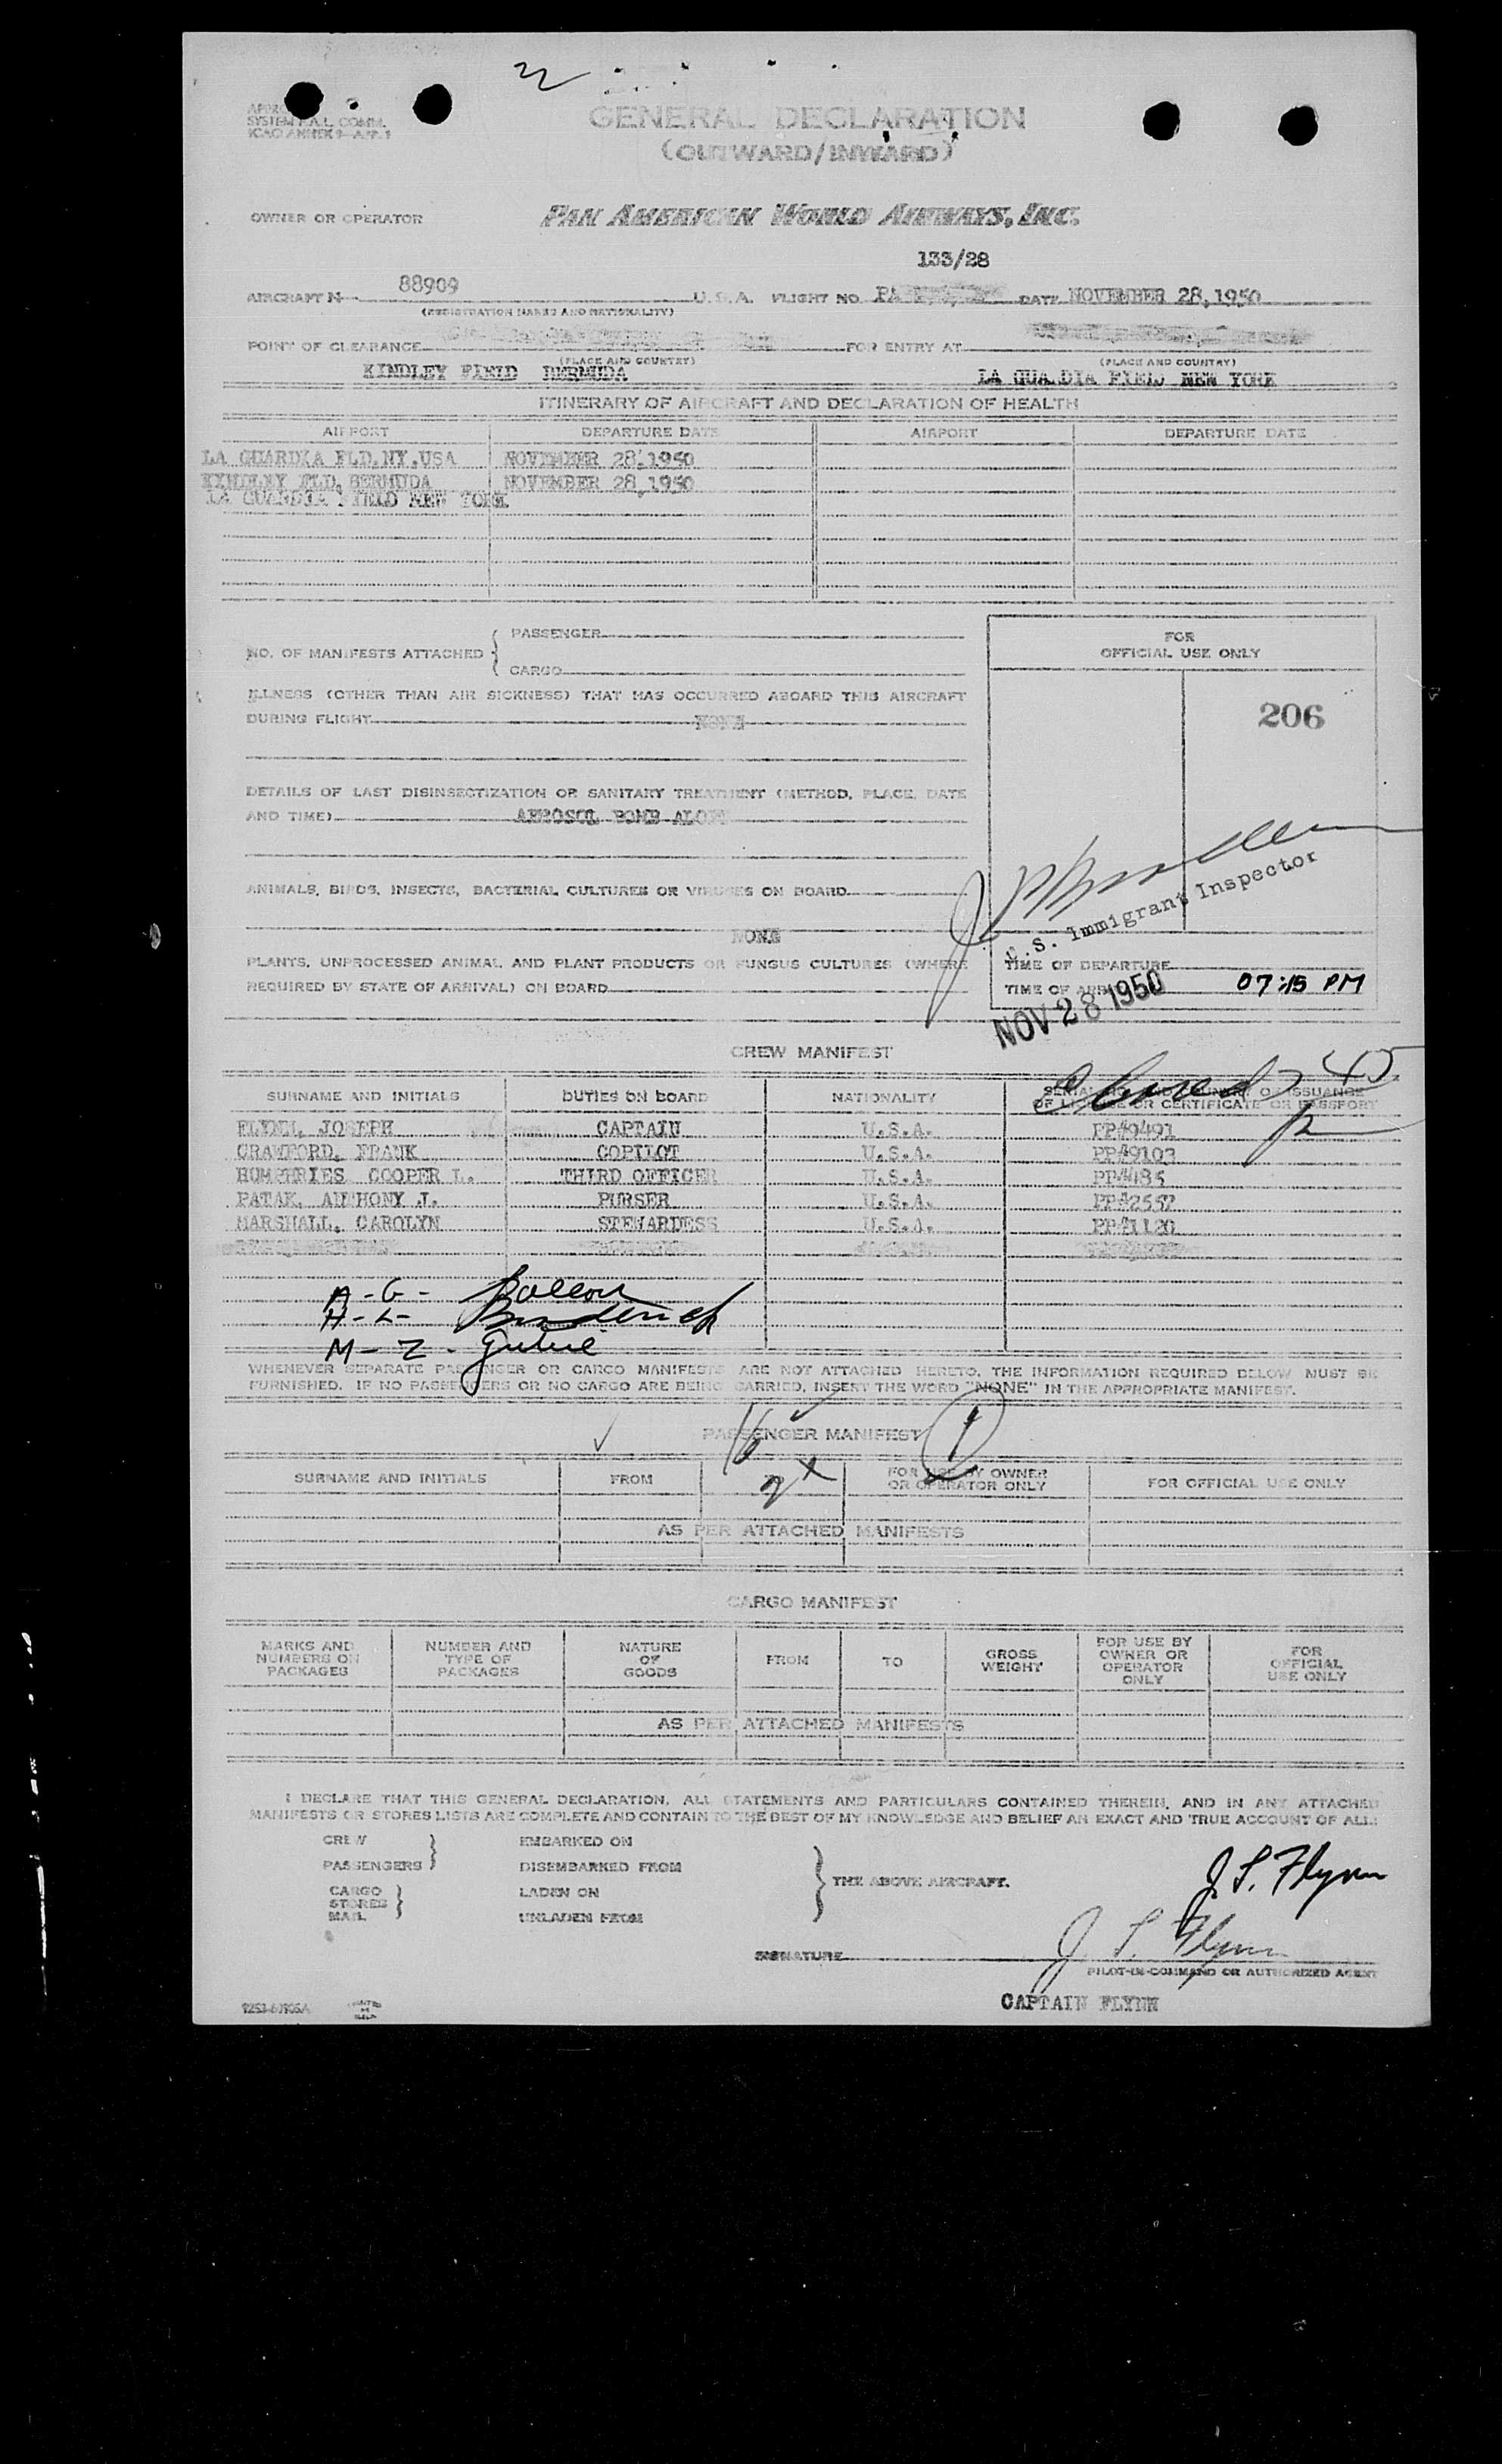 SYSTEM P.A.L. COMM.
ICAO ANNEX 9—APP. 1
GENERAL DECLARATION
(OUTWARD/INWARD)
OWNER OR OPERATOR PAN AMERICAN WORLD AIRWAYS, INC.
133/28
AIRCRAFT N 88909 U.S.A. FLIGHT NO. PA DATE NOVEMBER 28, 1950
(REGISTRATION MARKS AND NATIONALITY)
POINT OF CLEARANCE FOR ENTRY AT
(PLACE AND COUNTRY) (PLACE AND COUNTRY)
KINDLEY FIELD BERMUDA LA GUARDIA FIELD NEW YORK
ITINERARY OF AIRCRAFT AND DECLARATION OF HEALTH
AIRPORT DEPARTURE DATE AIRPORT DEPARTURE DATE
LA GUARDIA FLD.NY.USA NOVEMBER 28, 1950
KINDLEY FLD. BERMUDA NOVEMBER 28, 1950
LA GUARDIA FIELD NEW YORK
NO. OF MANIFESTS ATTACHED { PASSENGER
CARGO
FOR
OFFICIAL USE ONLY
ILLNESS (OTHER THAN AIR SICKNESS) THAT HAS OCCURRED ABOARD THIS AIRCRAFT
DURING FLIGHT NONE
206
DETAILS OF LAST DISINSECTIZATION OR SANITARY TREATMENT (METHOD, PLACE, DATE
AND TIME) AEROSOL BOMB ALOFT
ANIMALS, BIRDS, INSECTS, BACTERIAL CULTURES OR VIRUSES ON BOARD
NONE
U.S. Immigrant Inspector
PLANTS, UNPROCESSED ANIMAL AND PLANT PRODUCTS OR FUNGUS CULTURES (WHERE
REQUIRED BY STATE OF ARRIVAL) ON BOARD
TIME OF DEPARTURE
TIME OF ARRIVAL 07:15 PM
NOV 28 1950
CREW MANIFEST
45
SURNAME AND INITIALS DUTIES ON BOARD NATIONALITY SERIAL NO. AND COUNTRY OF ISSUANCE
OF LICENSE OR CERTIFICATE OR PASSPORT
FLYNN, JOSEPH CAPTAIN U.S.A. PP#9491
CRAWFORD, FRANK COPILOT U.S.A. PP#9103
HUMPHRIES COOPER L. THIRD OFFICER U.S.A. PP#485
PATAK, ANTHONY J. PURSER U.S.A. PP#2557
MARSHALL, CAROLYN STEWARDESS U.S.A. PP#1120
A-G-
H-L-
M-Z-
WHENEVER SEPARATE PASSENGER OR CARGO MANIFESTS ARE NOT ATTACHED HERETO, THE INFORMATION REQUIRED BELOW MUST BE
FURNISHED. IF NO PASSENGERS OR NO CARGO ARE BEING CARRIED, INSERT THE WORD "NONE" IN THE APPROPRIATE MANIFEST.
PASSENGER MANIFEST
SURNAME AND INITIALS FROM FOR USE BY OWNER
OR OPERATOR ONLY FOR OFFICIAL USE ONLY
AS PER ATTACHED MANIFESTS
CARGO MANIFEST
MARKS AND
NUMBERS ON
PACKAGES
NUMBER AND
TYPE OF
PACKAGES
NATURE
OF
GOODS
FROM
TO
GROSS
WEIGHT
FOR USE BY
OWNER OR
OPERATOR
ONLY
FOR
OFFICIAL
USE ONLY
AS PER ATTACHED MANIFESTS
I DECLARE THAT THIS GENERAL DECLARATION, ALL STATEMENTS AND PARTICULARS CONTAINED THEREIN, AND IN ANY ATTACHED
MANIFESTS OR STORES LISTS ARE COMPLETE AND CONTAIN TO THE BEST OF MY KNOWLEDGE AND BELIEF AN EXACT AND TRUE ACCOUNT OF ALL:
CREW
PASSENGERS
CARGO
STORES
MAIL
EMBARKED ON
DISEMBARKED FROM
LADEN ON
UNLADEN FROM
THE ABOVE AIRCRAFT.
J. S. Flynn
SIGNATURE J. S. Flynn
PILOT-IN-COMMAND OR AUTHORIZED AGENT
CAPTAIN FLYNN
PRINTED
IN
U.S.A.